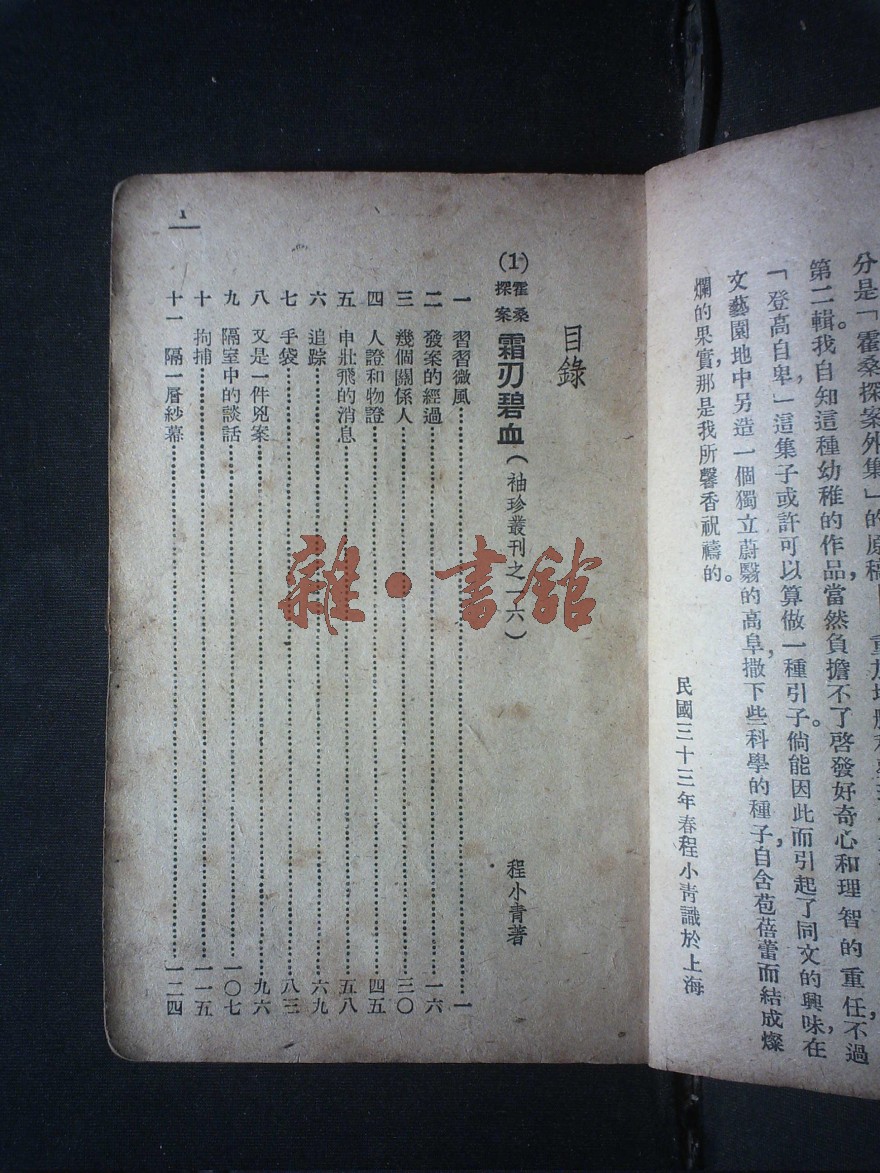 分是「霍桑探案外集」的原稿
第二輯。我自知這種幼稚的作品，當然負擔不了啓發好奇心和理智的重任，不過
「登高自卑」，這集子或許可以算做一種引子。倘能因此而引起了同文的興味，在
文藝園地中另造一個獨立蔚翳的高阜，撒下些科學的種子，自含苞蓓蕾而結成燦
爛的果實，那是我所馨香祝禱的。
民國三十三年春程小靑識於上海
目錄
(1) 霍桑探案 霜刃碧血（袖珍叢刊之一六） 程小青著
一 習習微風 一
二 發案的經過 一六
三 幾個關係人 三〇
四 人證和物證 四五
五 申壯飛的消息 五八
六 追踪 六九
七 手袋 八三
八 又是一件兇案 九六
九 隔室中的談話 一〇七
十 拘捕 一一五
十一 隔一層紗幕 一二四
1
雜·書館